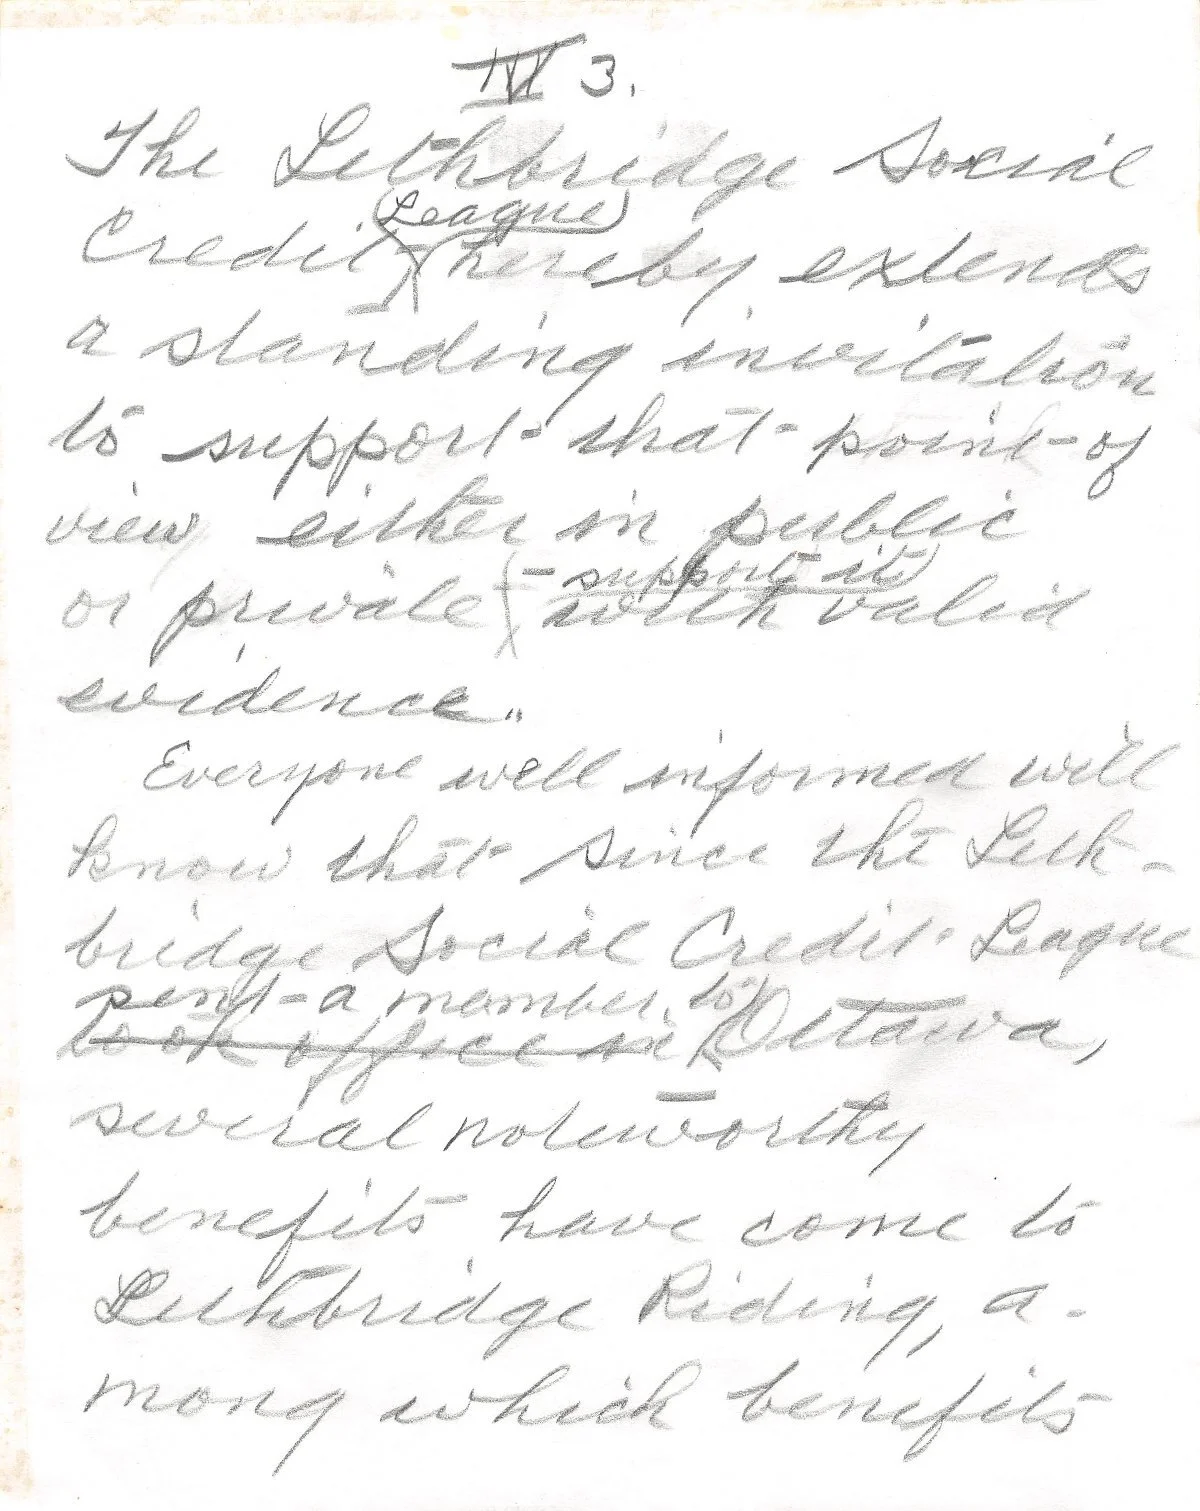 IV 3.
The Lethbridge Social
League
Credit hereby extends
a standing invitation
to support that point of
view either in public
- support it
or private with valid
evidence."
Everyone well informed will
know that since the Leth-
bridge Social Credit League
sent a member to
took office in Ottawa,
several noteworthy
benefits have come to
Lethbridge Riding, a-
mong which benefits